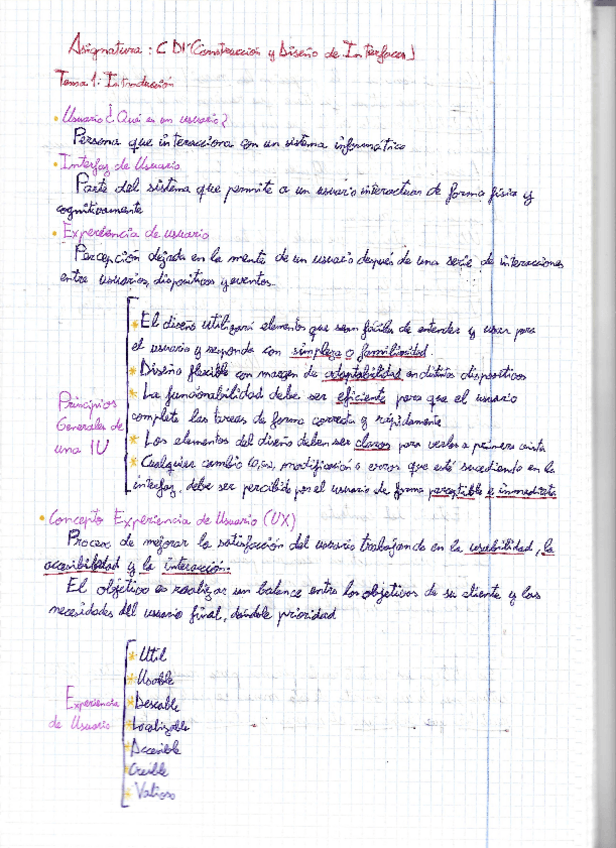 Asignatura: CDI (Construcción y Diseño de Interfaces)
Tema 1: Introducción
• Usuario ¿Qué es un usuario?
Persona que interacciona con un sistema informático
• Interfaz de Usuario
Parte del sistema que permite a un usuario interactuar de forma física y
cognitivamente
• Experiencia de usuario
Percepción dejada en la mente de un usuario después de una serie de interacciones
entre usuarios, dispositivos y eventos.
Principios
Generales de
una IU
* El diseño utilizará elementos que sean fáciles de entender y usar para
el usuario y responda con simpleza o familiaridad.
* Diseño flexible con margen de adaptabilidad en distintos dispositivos
* La funcionabilidad debe ser eficiente para que el usuario
complete las tareas de forma correcta y rápidamente
* Los elementos del diseño deben ser claros para verlos a primera vista
* Cualquier cambio, modificación o error que esté sucediendo en la
interfaz, debe ser percibido por el usuario de forma perceptible e inmediata
• Concepto Experiencia de Usuario (UX)
Proceso de mejorar la satisfacción del usuario trabajando en la usabilidad, la
accesibilidad y la interacción.
El objetivo es realizar un balance entre los objetivos de su cliente y las
necesidades del usuario final, dándole prioridad
Experiencia
de Usuario
* Util
* Usable
* Deseable
* Localizable
* Accesible
* Creíble
* Valioso